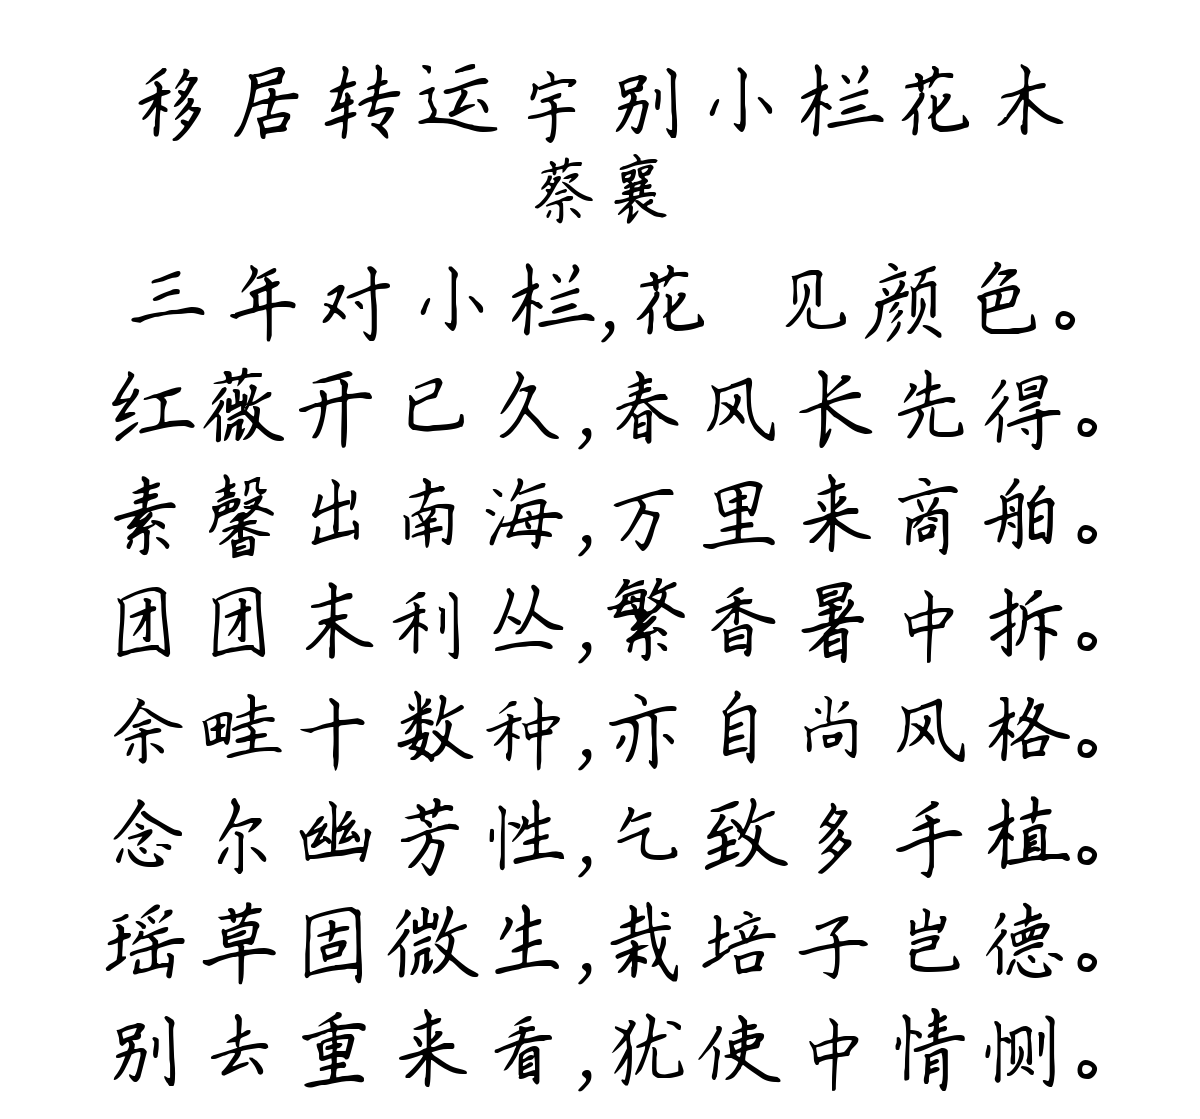 移居转运宇别小栏花木
蔡襄
三年对小栏,花 见颜色。
红薇开已久,春风长先得。
素馨出南海,万里来商舶。
团团末利丛,繁香暑中拆。
余畦十数种,亦自尚风格。
念尔幽芳性,乞致多手植。
瑶草固微生,栽培子岂德。
别去重来看,犹使中情恻。